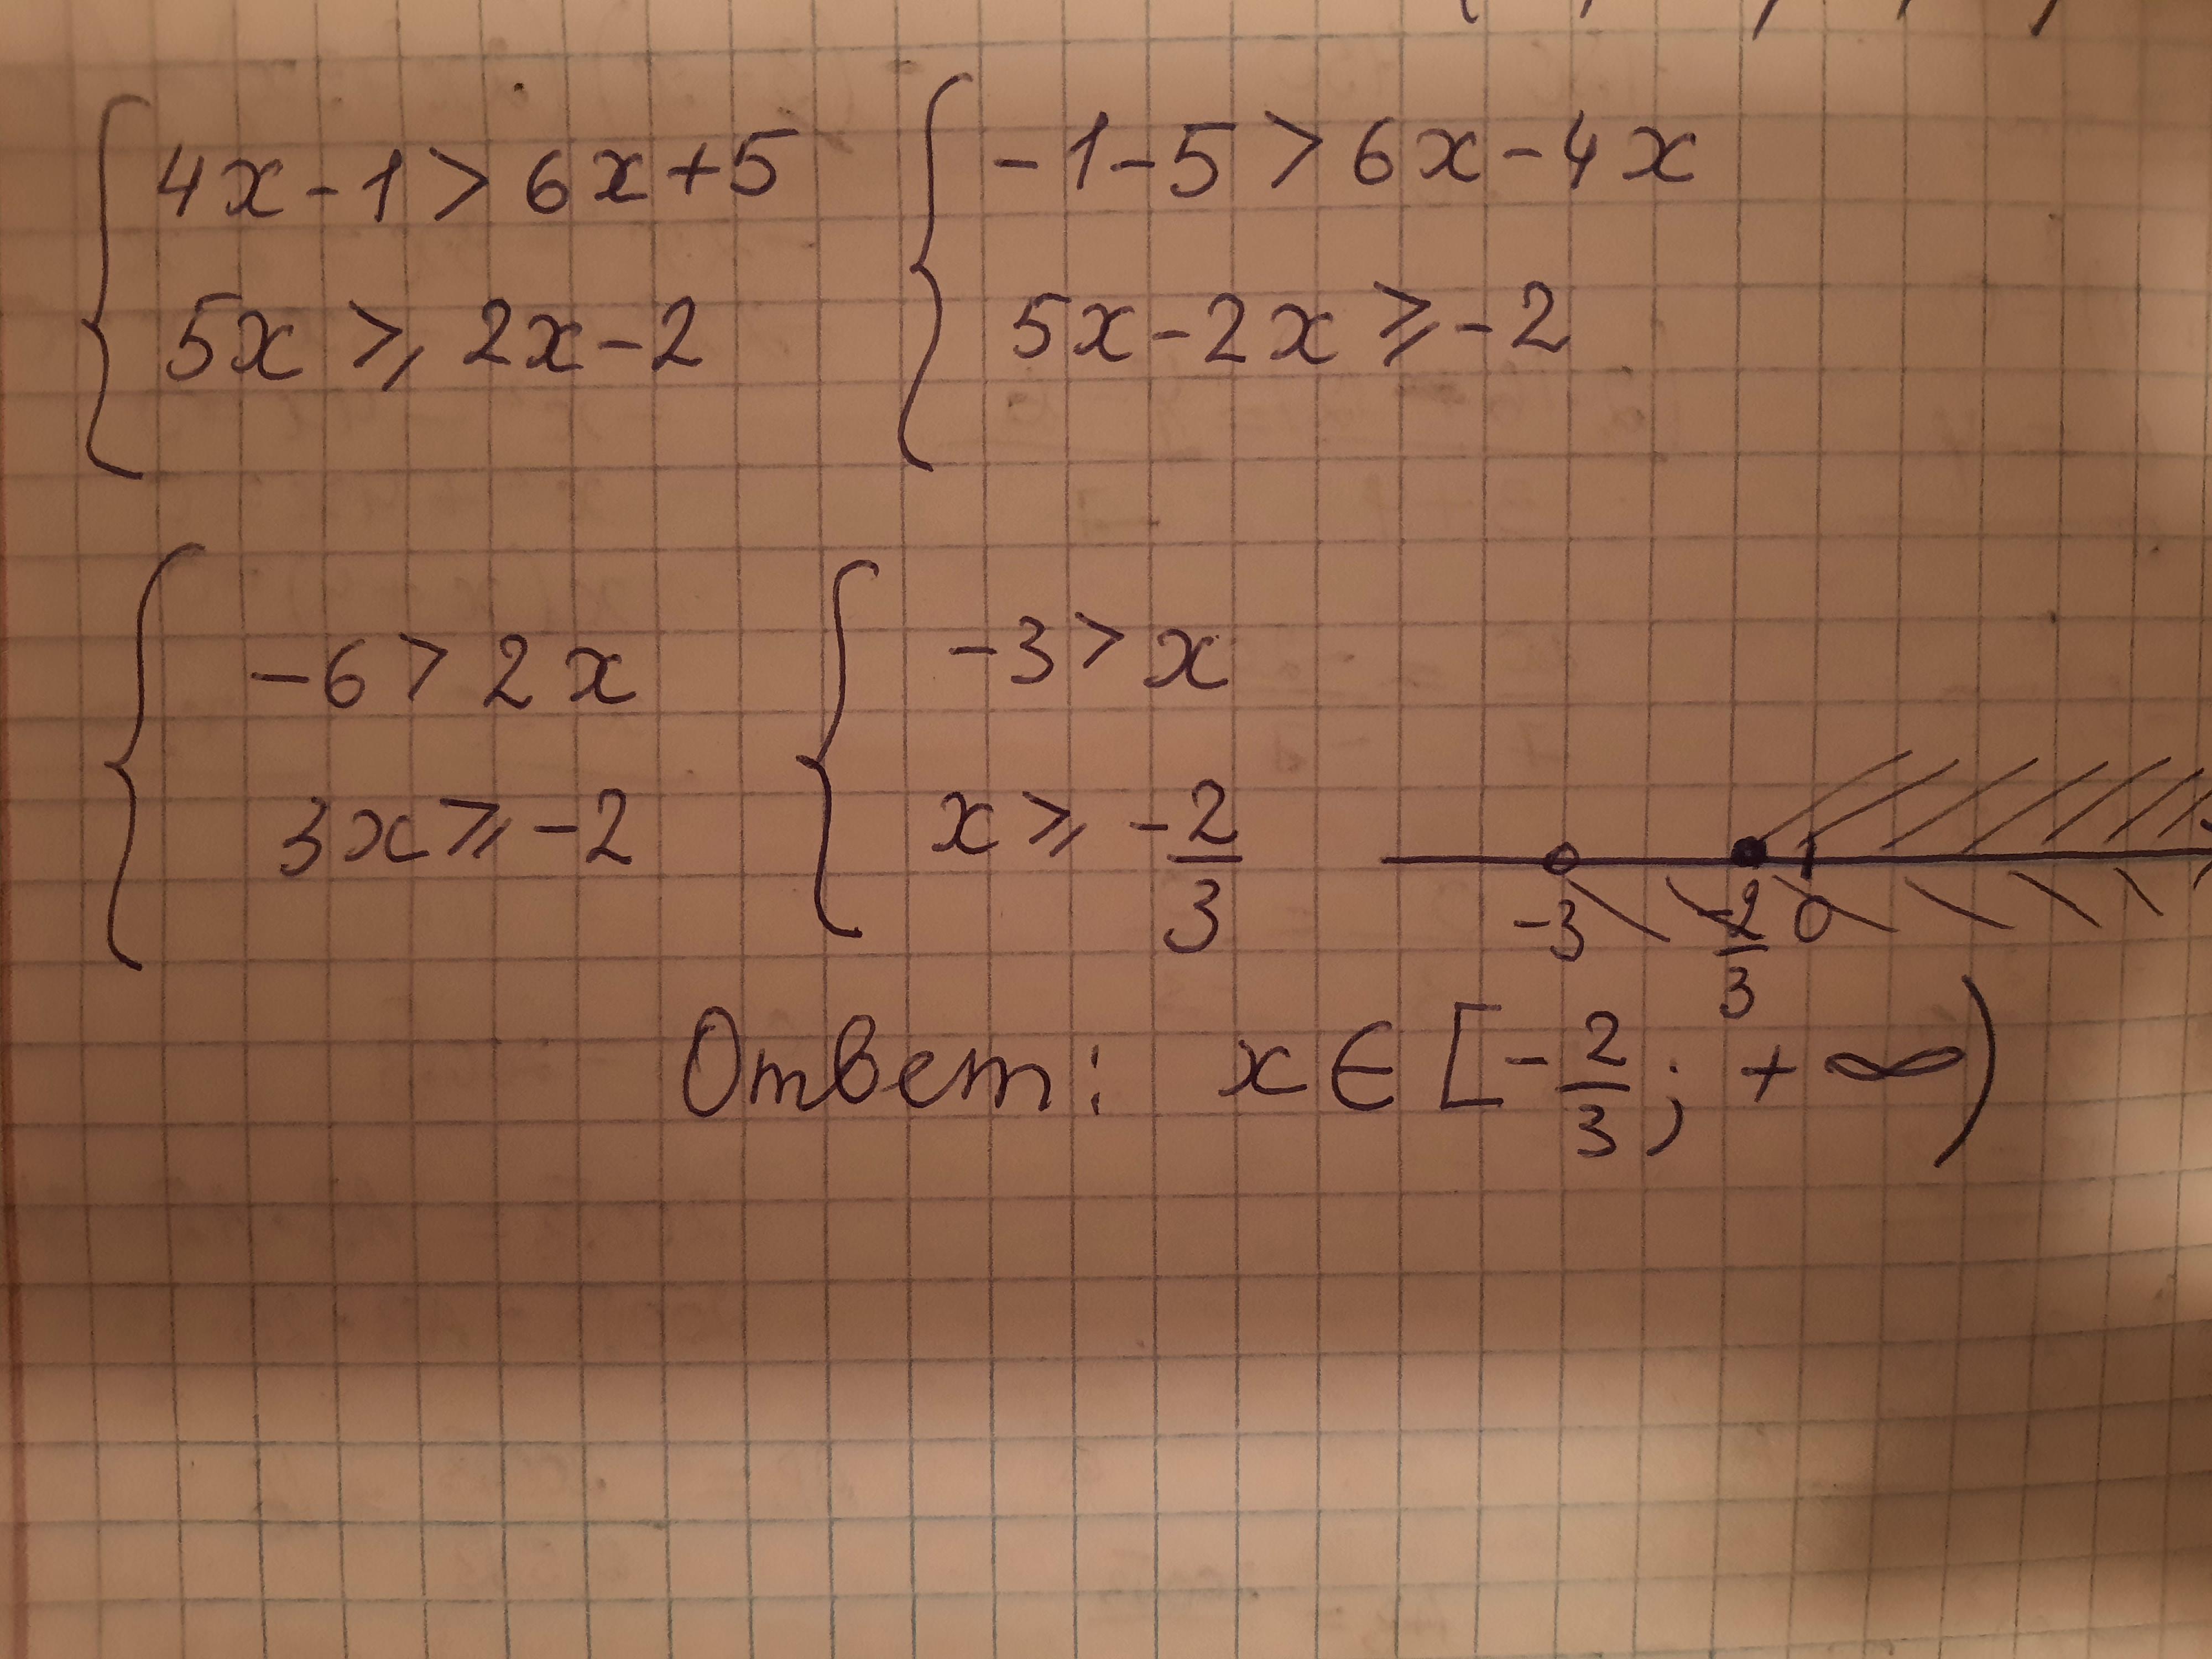 4x-1>6x+5
5x⩾2x-2
-1-5>6x-4x
5x-2x⩾-2
-6>2x
3x⩾-2
-3>x
x⩾-2/3
-3 -2/3 0
Ответ: x∈[-2/3; +∞)